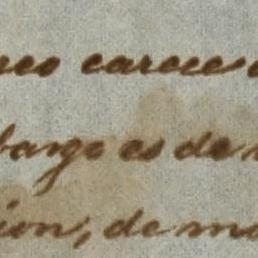 neo carece
bargo es de
ion, de mo